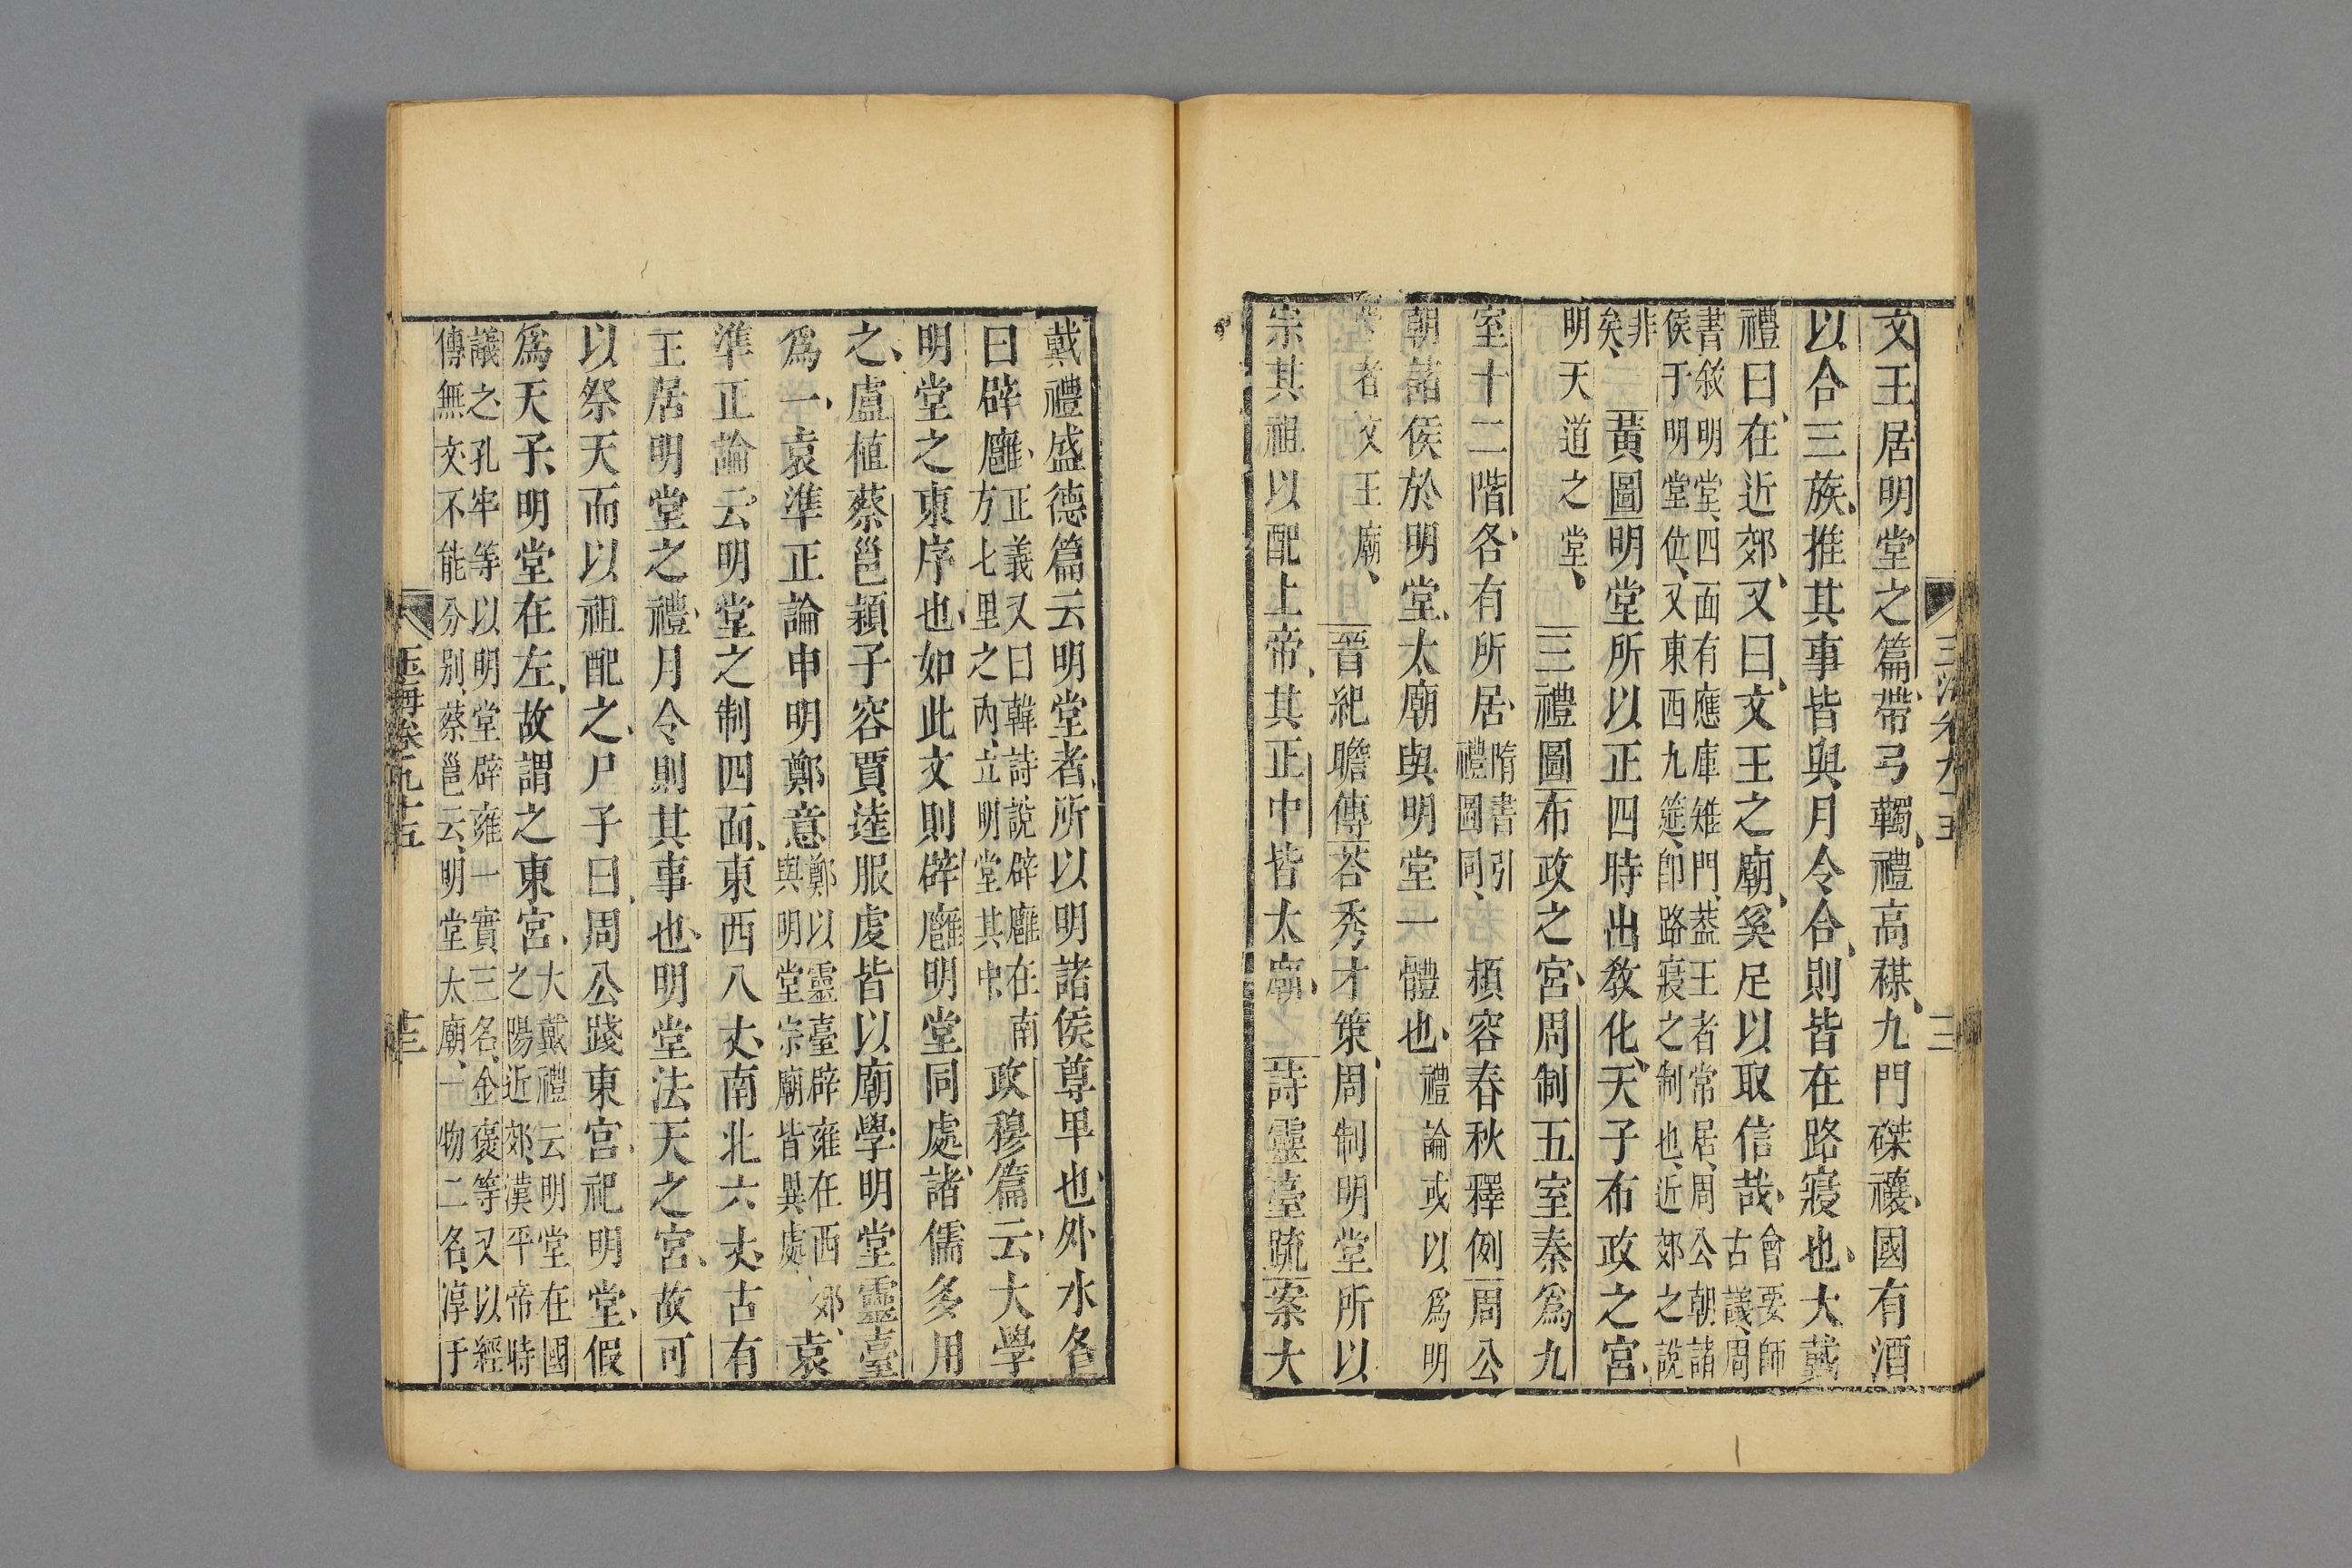 文王居明堂之篇帶弓韣禮高禖九門磔禳國有酒
以合三族推其事皆與月令合則皆在路寢也大戴
禮曰在近郊又曰文王之廟奚足以取信哉會要師古議周
書敘明堂四面有應庫雉門葢王者常居周公朝諸侯于明堂位又東西九筵卽路寢之制也近郊之說
非矣黃圖明堂所以正四時出敎化天子布政之宮
明天道之堂三禮圖布政之宮周制五室秦爲九
室十二階各有所居隋書引禮圖同頴容春秋釋例周公
朝諸侯於明堂太廟與明堂一體也禮論或以爲明
堂者文王廟晉紀瞻傳荅秀才策周制明堂所以
宗其祖以配上帝其正中皆太廟詩靈臺疏案大
戴禮盛德篇云明堂者所以明諸侯尊卑也外水名
曰辟廱正義又曰韓詩說辟廱在南方七里之內立明堂其中政穆篇云大學
明堂之東序也如此文則辟廱明堂同處諸儒多用
之盧植蔡邕頴子容賈逵服虔皆以廟學明堂靈臺
爲一袁準正論申明鄭意鄭以靈臺辟雍在西郊與明堂宗廟皆異處袁
準正論云明堂之制四面東西八丈南北六丈古有
王居明堂之禮月令則其事也明堂法天之宮故可
以祭天而以祖配之尸子曰周公踐東宮祀明堂假
爲天子明堂在左故謂之東宮大戴禮云明堂在國之陽近郊漢平帝時
議之孔牢等以明堂辟雍一實三名金褒等又以經傳無文不能分别蔡邕云明堂太廟一物二名淳于
玉海卷九十五